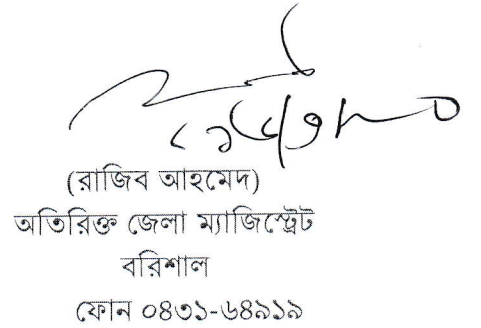 (রাজিব আহমেদ)
অতিরিক্ত জেলা ম্যাজিস্ট্রেট
বরিশাল
ফোন ০৪৩১-৬৪৯১৯